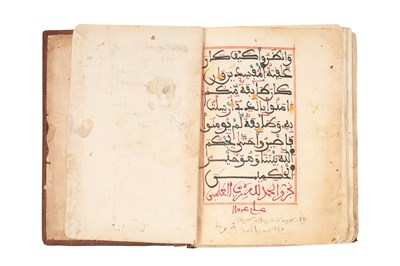 وانظروا كيف كان
عقبة المفسدين وان
كان طايفة منكم
امنوا بالذي ارسلت
به وطايفة لم يومنوا
فاصبروا حتى يحكم
الله بيننا وهو خير
الحكمين
الحمد لله رب العلمين